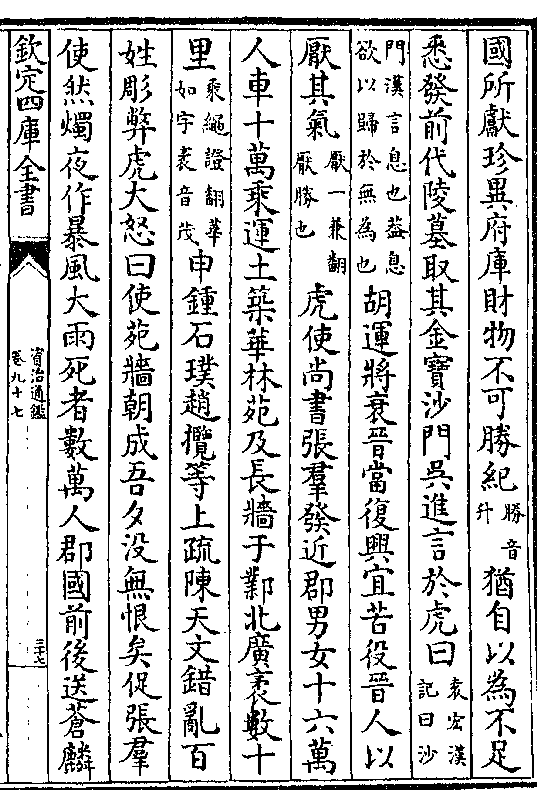 國所獻珍異府庫財物不可勝紀勝音升猶自以為不足
悉發前代陵墓取其金寶沙門吳進言於虎曰袁宏漢記曰沙
門漢言息也葢息欲以歸於無為也胡運將衰晉當復興宜苦役晉人以
厭其氣厭一兼翻厭勝也虎使尚書張羣發近郡男女十六萬
人車十萬乘運土築華林苑及長牆于鄴北廣袤數十
里乘繩證翻華如字袤音茂申鍾石璞趙攬等上疏陳天文錯亂百
姓彫弊虎大怒曰使苑牆朝成吾夕没無恨矣促張羣
使然燭夜作暴風大雨死者數萬人郡國前後送蒼麟
欽定四庫全書
資治通鑑
卷九十七
三十七